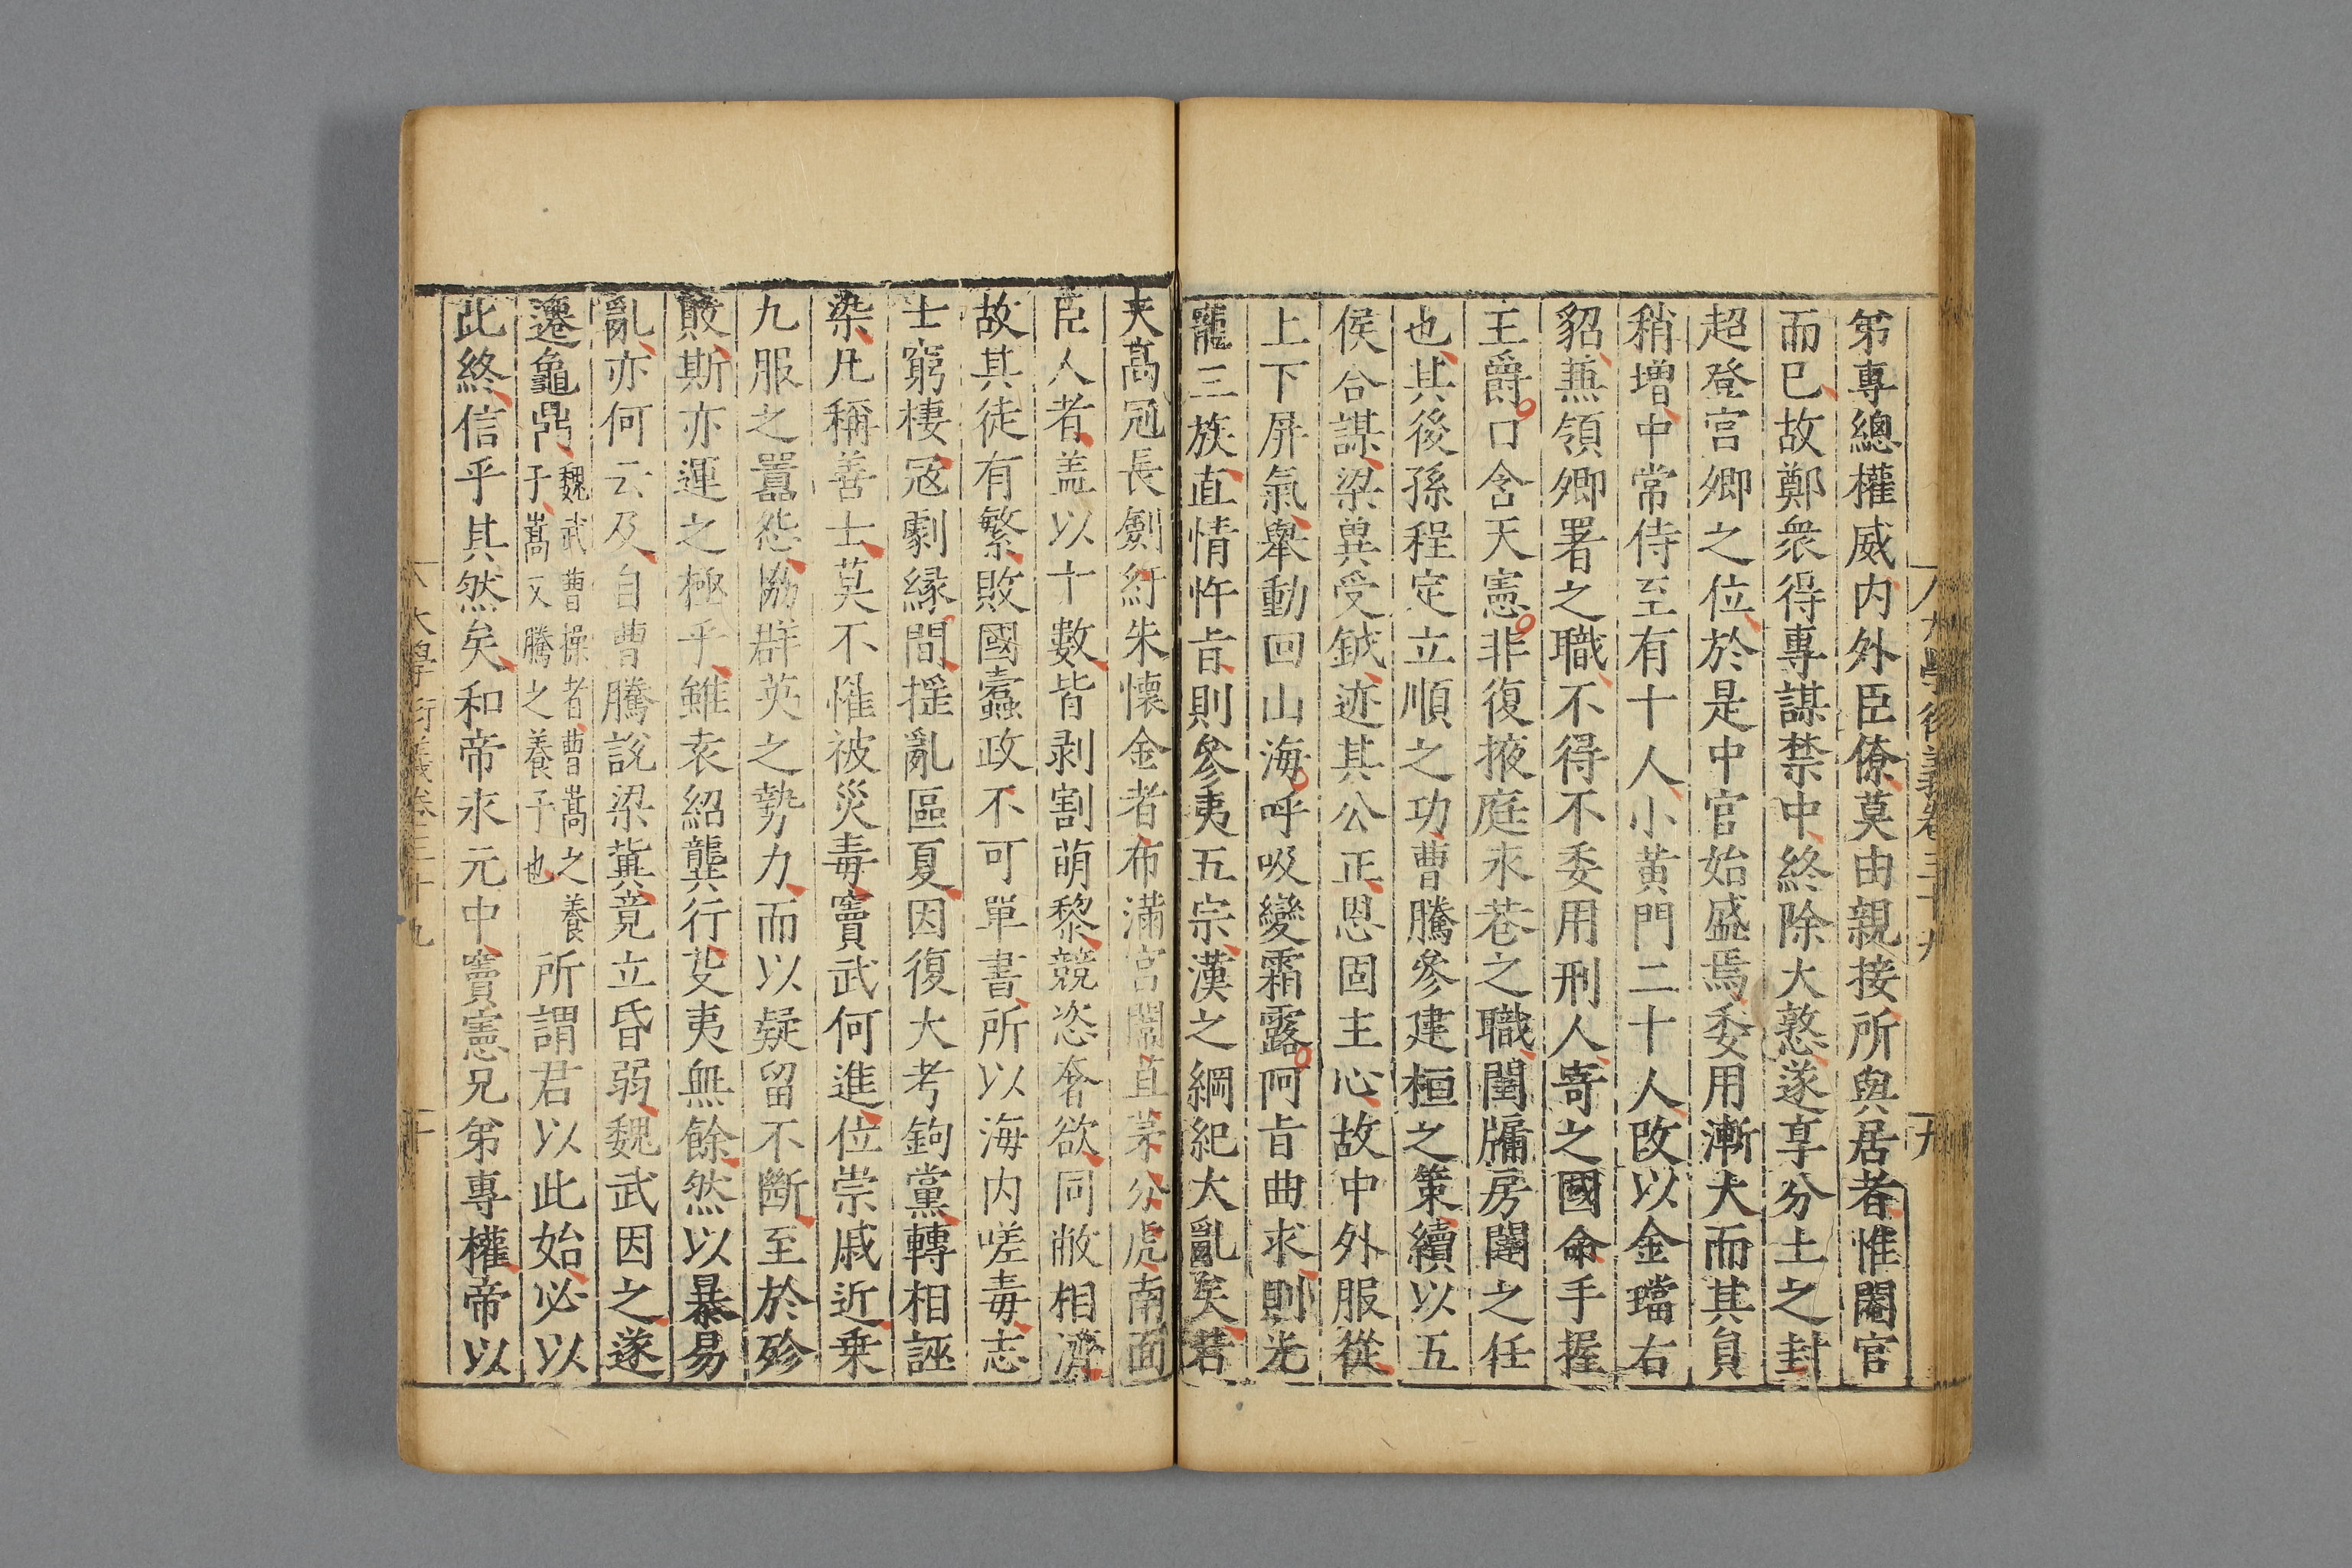 弟專總權威内外臣僚莫由親接所與居者惟閹官
而已故鄭衆得專謀禁中終除大憝遂享分土之封
超登宫卿之位於是中官始盛焉委用漸大而其員
稍增中常侍至有十人小黄門二十人改以金璫右
貂兼領卿署之職不得不委用刑人寄之國命手握
王爵口含天憲非復掖庭永巷之職閨牗房闥之任
也其後孫程定立順之功曹騰參建桓之策續以五
侯合謀梁冀受鉞迹其公正恩固主心故中外服從
上下屏氣舉動回山海呼吸變霜露阿旨曲求則光
寵三族直情忤旨則參夷五宗漢之綱紀大亂矣若
夫髙冠長劔紆朱懷金者布滿宫闈苴茅分虎南面
臣人者盖以十數皆剥割萌黎競恣奢欲同敝相濟
故其徒有繁敗國蠹政不可單書所以海内嗟毒志
士窮棲寇劇縁間摇亂區夏因復大考鉤黨轉相誣
染凡稱善士莫不惟被災毒竇武何進位崇戚近乗
九服之嚚怨協群英之勢力而以疑留不斷至於殄
敗斯亦運之極乎雖袁紹龔行芟夷無餘然以暴易
亂亦何云及自曹騰說梁冀竟立昏弱魏武因之遂
遷龜鼎魏武曹操者曹嵩之養子嵩又騰之養子也所謂君以此始必以
此終信乎其然矣和帝永元中竇憲兄弟專權帝以
大學衍義卷三十九
十
大學衍義卷三十九
十九